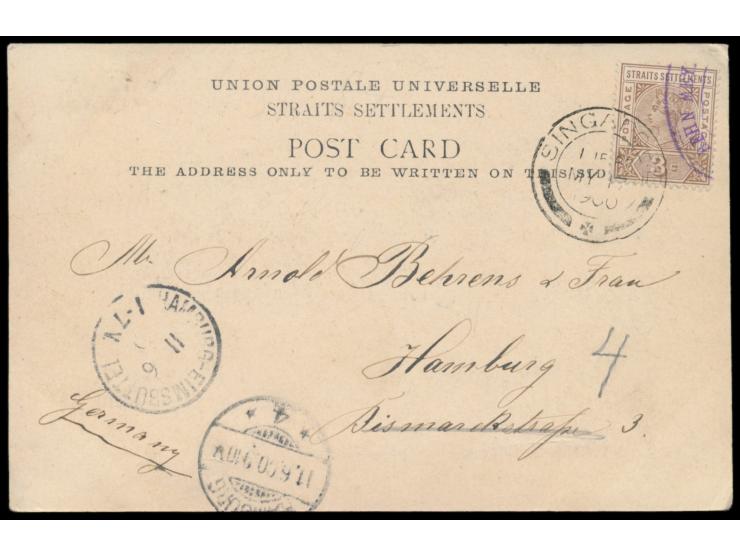 UNION POSTALE UNIVERSELLE
STRAITS SETTLEMENTS
POST CARD
THE ADDRESS ONLY TO BE WRITTEN ON THIS SIDE
STRAITS SETTLEMENTS
POSTAGE
POSTAGE
SINGA
MY
1900
Mr. Arnold Behrens & Frau
Hamburg
4
Bismarckstrasse 3.
Germany
HAMBURG-EIMSBÜTTEL
11
6
1-7V
* 4 *
11.6.00.9-10V